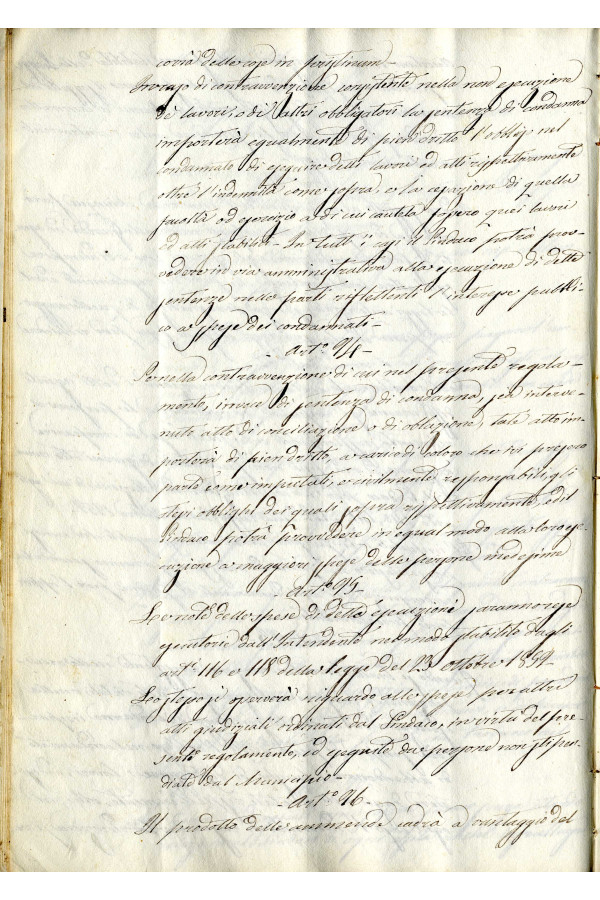 coria delle cose in pristinum -
In caso di contravvenzione consistente nella non esecuzione
de' lavori, o di altri obbligatori la sentenza di condanna
importerà egualmente di pien dritto l'obbligo nel
condannato di eseguire detti lavori ed atti rispettivamente
oltre l'indennità come sopra, e la cessazione di quella
facoltà od esercizio a di cui cautela fossero quei lavori
ed atti stabiliti - In tutti i casi il Sindaco potrà prov-
vedere in via amministrativa alla esecuzione di dette
sentenze nelle parti riflettenti l'interesse pubbli-
co a spese dei condannati -
- Art.° 94 -
Se nella contravvenzione di cui nel presente regola-
mento, invece di sentenza di condanna, sia interve-
nuto atto di conciliazione o di oblazione, tale atto im-
porterà di pien dritto, a carico di coloro che vi presero
parte come imputati, o civilmente responsabili, gli
stessi obblighi dei quali sopra rispettivamente, ed il
Sindaco potrà provvedere in egual modo alla loro ese-
cuzione a maggiori spese delle persone medesime
- Art.° 95 -
Le note delle spese di dette esecuzioni saranno rese
esecutorie dall'Intendente nel modo stabilito dagli
art.i 116 e 118 della legge del 23 Ottobre 1859 -
Lo stesso si osserverà riguardo alle spese per altri
atti giudiziali ordinati dal Sindaco, in virtù del pre-
sente regolamento, ed eseguiti da persone non stipen-
diate dal Municipio -
- Art.° 96 -
Il prodotto delle ammende cadrà a vantaggio del